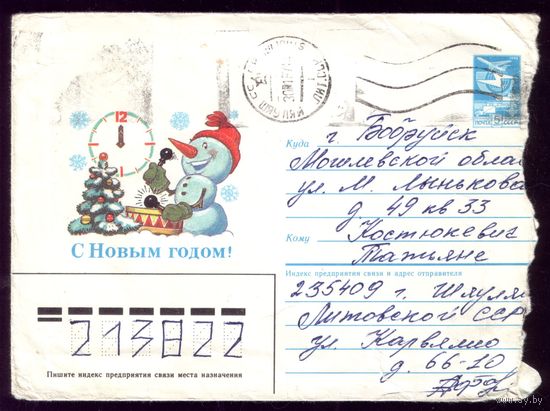 12
С Новым годом!
ПОЧТА СССР
Куда
г. Бобруйск
Могилевской облас
ул. М. Лынькова
д 49 кв 33
Кому
Костюкевич
Татьяне
Индекс предприятия связи и адрес отправителя
235409 г. Шяуляй
Литовской ССР
ул
д. 66-20
213822
Пишите индекс предприятия связи места назначения
ay.by